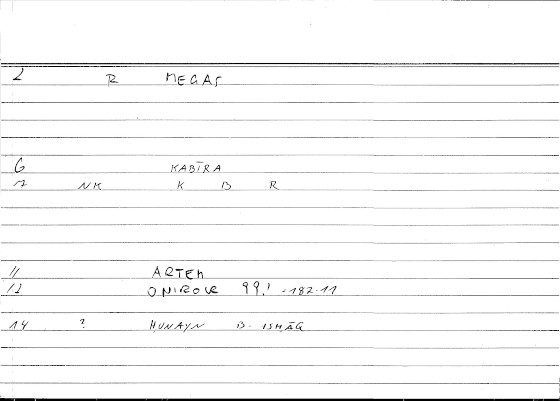 2 R MEGAS
6 KABĪRA
7 NK K B R
11 ARTEM
12 ONIROCR 99,1 -182.11
14 ? HUNAYN B. ISHĀQ